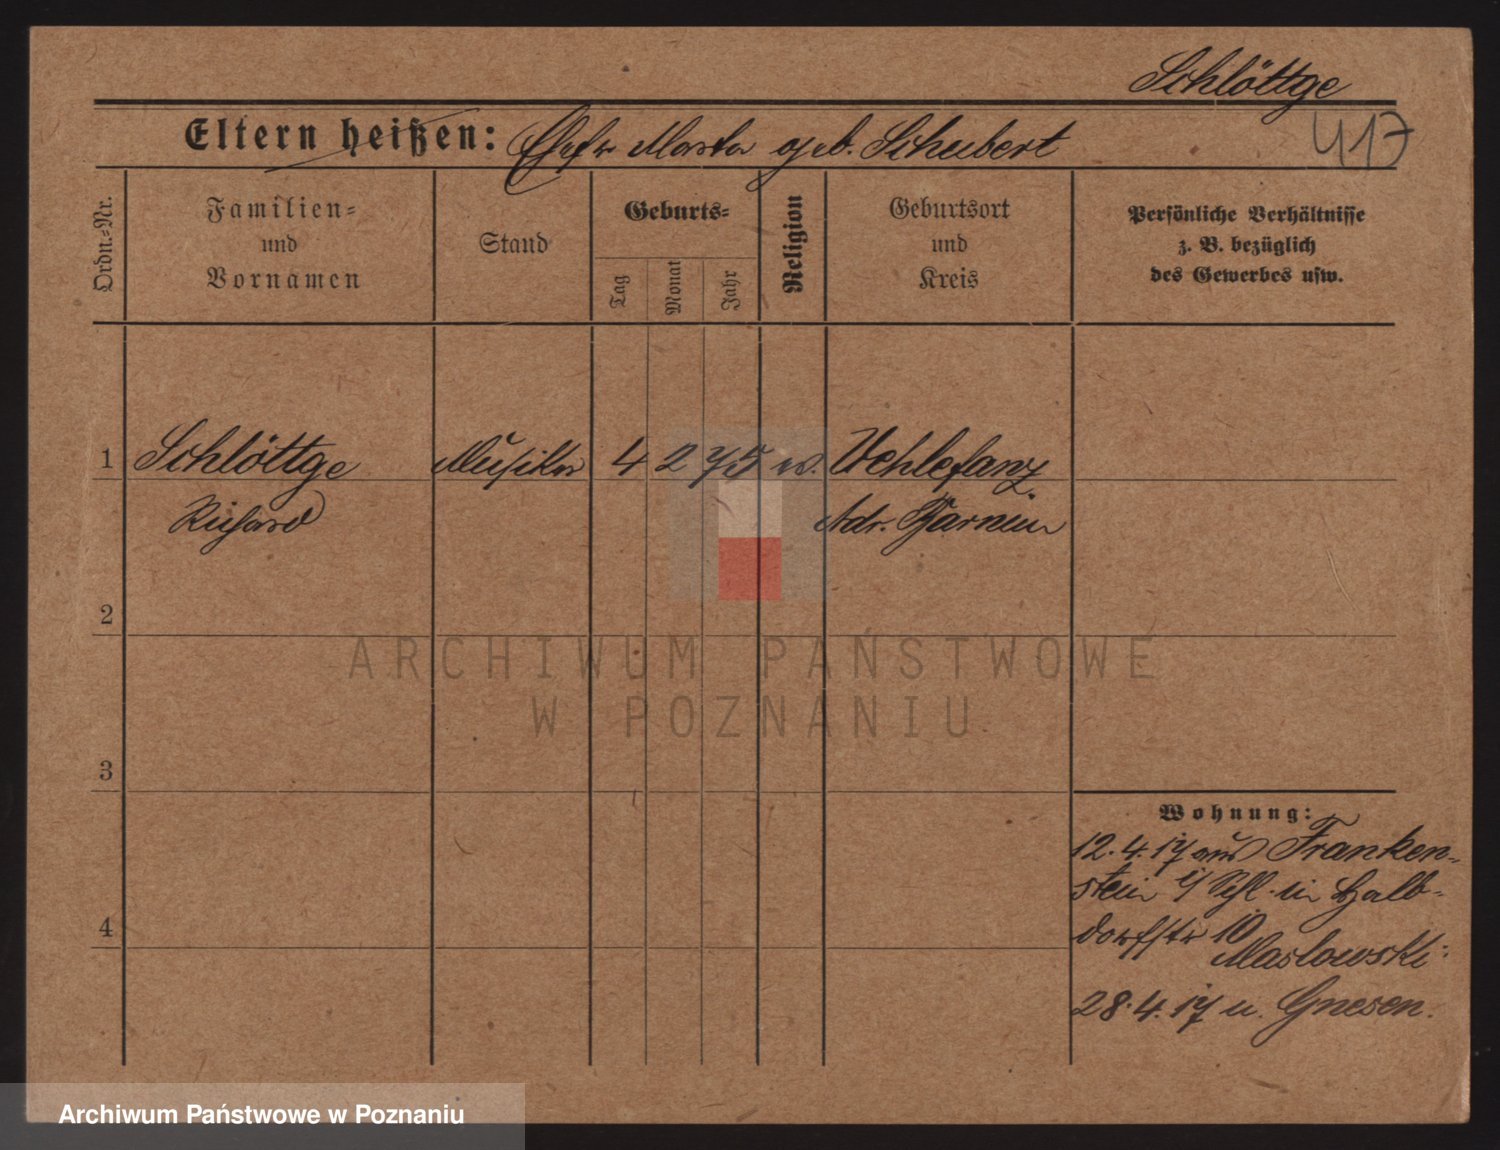 Schlöttge
417
Eltern heißen: Ehefr Marta geb. Schubert
Ordn.-Nr.
Familien-
und
Vornamen
Stand
Geburts-
Tag
Monat
Jahr
Religion
Geburtsort
und
Kreis
Persönliche Verhältnisse
z. B. bezüglich
des Gewerbes usw.
1 Schlöttge Musiker 4 2 75 ev. Vehlefanz
Richard
2
3
4
Wohnung:
12.4.17 aus Franken-
stein i/Schl. in Halb-
dorfstr 10
Maslowski.
28.4.17 n. Gnesen.
ARCHIWUM PAŃSTWOWE
W POZNANIU
Archiwum Państwowe w Poznaniu